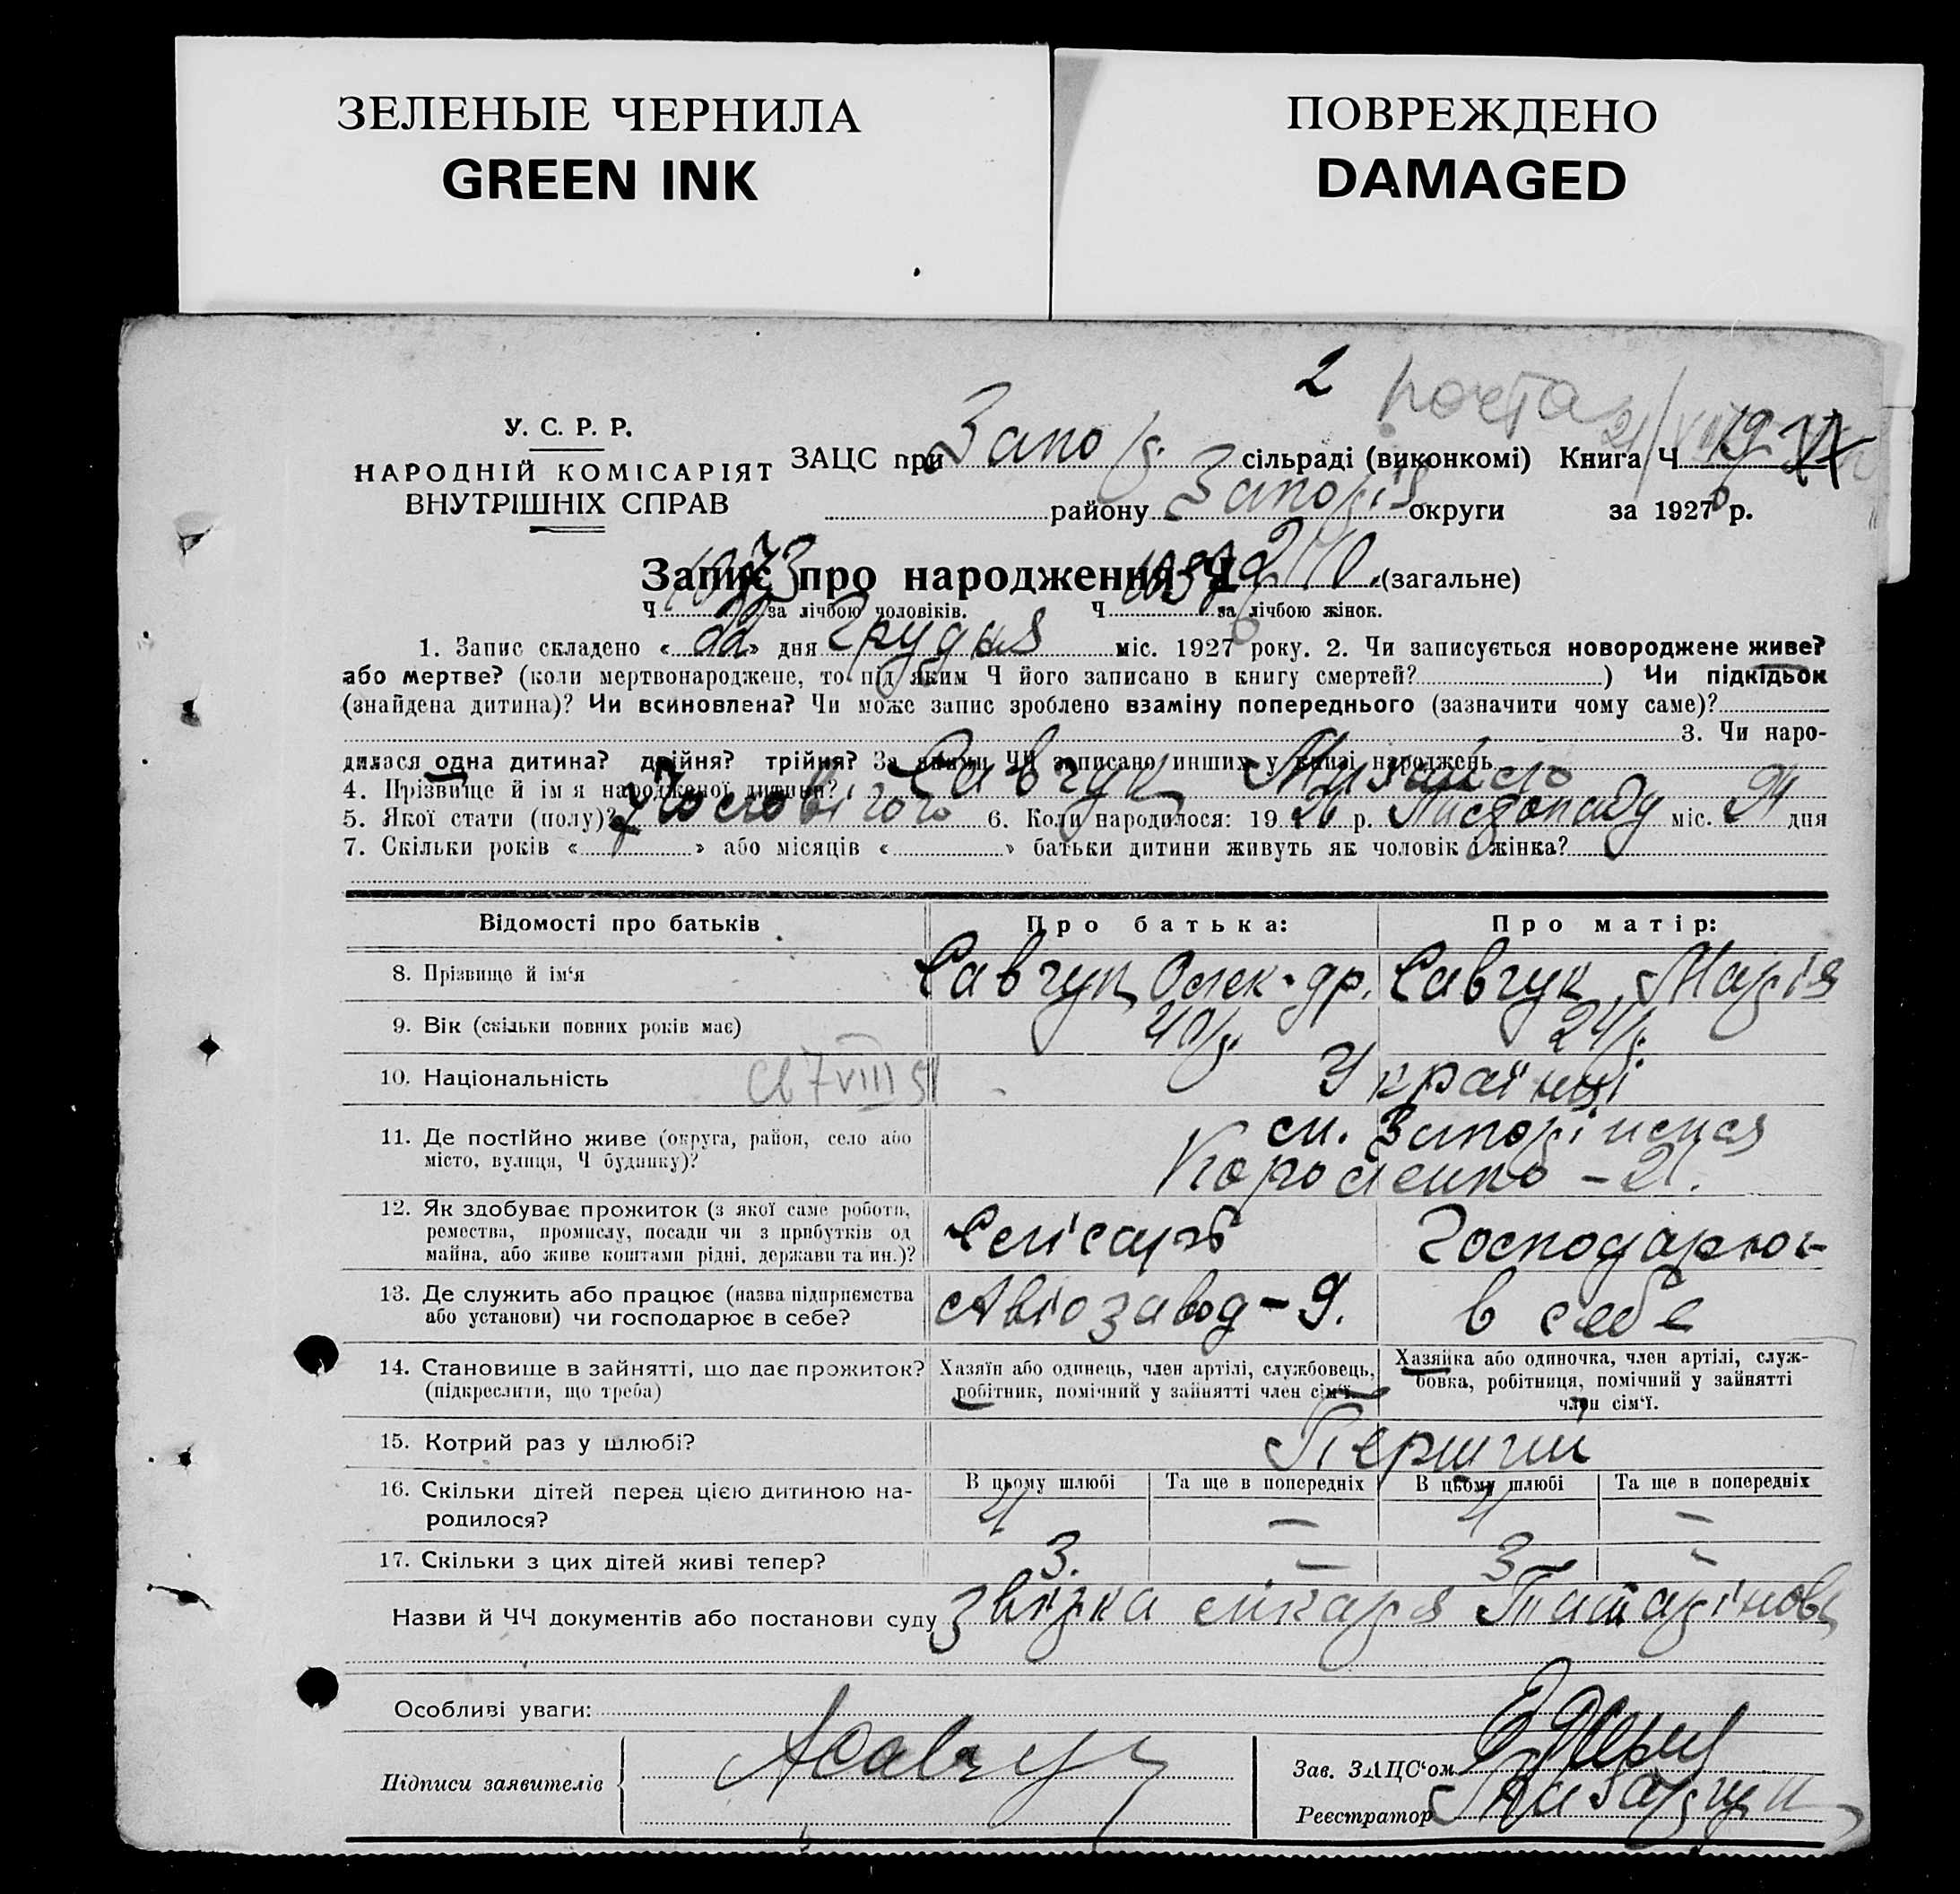 ЗЕЛЕНЫЕ ЧЕРНИЛА
GREEN INK
ПОВРЕЖДЕНО
DAMAGED
2
У. С. Р. Р.
НАРОДНІЙ КОМІСАРІЯТ
ВНУТРІШНІХ СПРАВ
ЗАЦС при сільраді (виконкомі) Книга Ч. 19
району округи за 1927 р.
Запис про народження Ч. (загальне)
Ч. за лічбою чоловіків. Ч. за лічбою жінок.
1. Запис складено « 22 » дня Грудня міс. 1927 року. 2. Чи записується новороджене живе?
або мертве? (коли мертвонароджене, то під яким Ч його записано в книгу смертей? ) Чи підкідьок
(знайдена дитина)? Чи всиновлена? Чи може запис зроблено взаміну попереднього (зазначити чому саме)?
3. Чи наро-
дилася одна дитина? двійня? трійня? За якими ЧЧ записано инших у книзі народжень
4. Прізвище й ім'я народженої дитини? Савчук Михайло
5. Якої стати (полу)? Чоловічого 6. Коли народилося: 19 26 р. Листопаду міс. 24 дня
7. Скільки років « » або місяців « » батьки дитини живуть як чоловік і жінка?
Відомості про батьків Про батька: Про матір:
8. Прізвище й ім'я Савчук Олек-др. Савчук Марія
9. Вік (скільки повних років має) 40 р. 24 р.
10. Національність Українці
11. Де постійно живе (округа, район, село або
місто, вулиця, Ч будинку)? Короленко - 21.
12. Як здобуває прожиток (з якої саме роботи,
ремества, промислу, посади чи з прибутків од
майна, або живе коштами рідні, держави та ин.)? Слісарь Господарює
13. Де служить або працює (назва підприємства
або установи) чи господарює в себе? Авіозавод - 9. в себе
14. Становище в зайнятті, що дає прожиток?
(підкреслити, що треба)
Хазяїн або одинець, член артілі, службовець,
робітник, помічний у зайнятті член сім'ї.
Хазяйка або одиночка, член артілі, служ-
бовка, робітниця, помічний у зайнятті
член сім'ї.
15. Котрий раз у шлюбі? Перший
В цьому шлюбі Та ще в попередніх В цьому шлюбі Та ще в попередніх
16. Скільки дітей перед цією дитиною на-
родилося? 4 — 4 —
17. Скільки з цих дітей живі тепер? 3. — 3 —
Назви й ЧЧ документів або постанови суду лікаря
Особливі уваги:
Підписи заявителів А Савчук
Зав. ЗАЦС'ом
Реєстратор